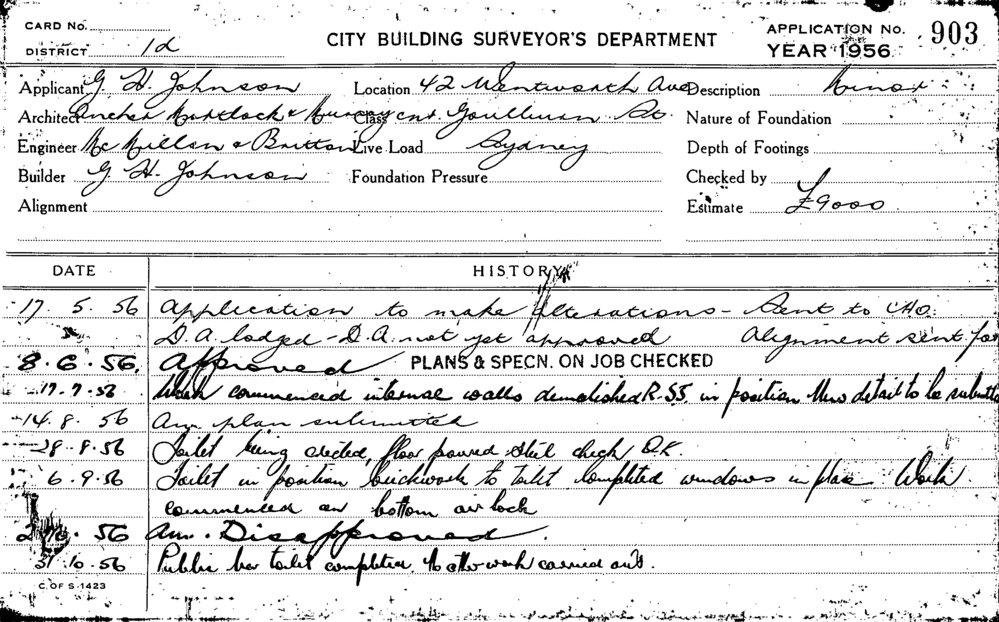 CARD No.
DISTRICT 1d
CITY BUILDING SURVEYOR'S DEPARTMENT
APPLICATION No. 903
YEAR 1956
Applicant G H Johnson Location 42 Wentworth Ave Description Minor
Architect Mortlock & Murray Class cnr Goulburn St. Nature of Foundation
Engineer McMillan & Britton Live Load Sydney Depth of Footings
Builder G. H. Johnson Foundation Pressure Checked by
Alignment Estimate £9000
DATE HISTORY
17. 5. 56 Application to make alterations - Sent to CHO.
D.A. lodged - D.A. not yet approved Alignment sent for
8. 6. 56. Approved PLANS & SPECN. ON JOB CHECKED
17-7-56 Work commenced internal walls demolished R.S.J. in position New detail to be submitted
14. 8. 56 Am. plan submitted
28-8-56 Toilet being erected, floor poured steel check O.K.
6. 9. 56 Toilet in position brickwork to toilet completed windows in place Work
commenced on bottom air lock
56 Am. Disapproved.
31. 10. 56 Public bar toilet completed. No other work carried out.
C. OF S. 1423